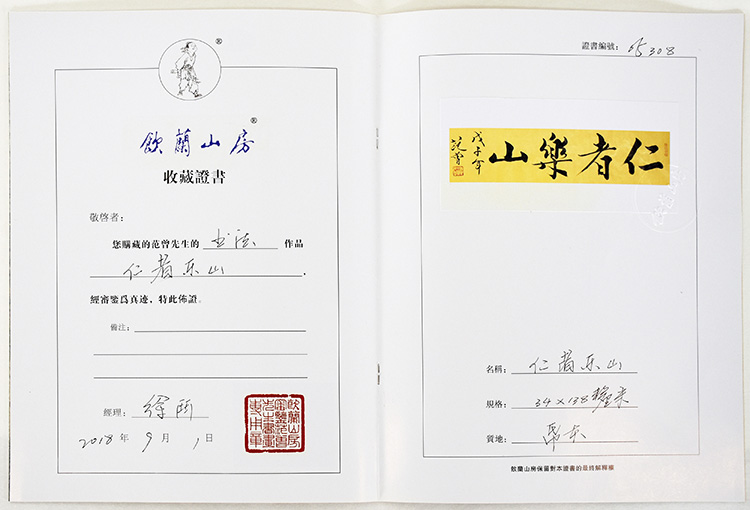 ®
飲蘭山房®
收藏證書
敬啓者：
您購藏的范曾先生的 书法 作品
仁者乐山 .
經審鑒爲真迹，特此佈證。
備注：
經理：
2018 年 9 月 1 日
證書編號： 308
仁者樂山
戊子年
范曾
名稱： 仁者乐山
規格： 34×138釐米
質地： 纸本
飲蘭山房保留對本證書的最終解釋權